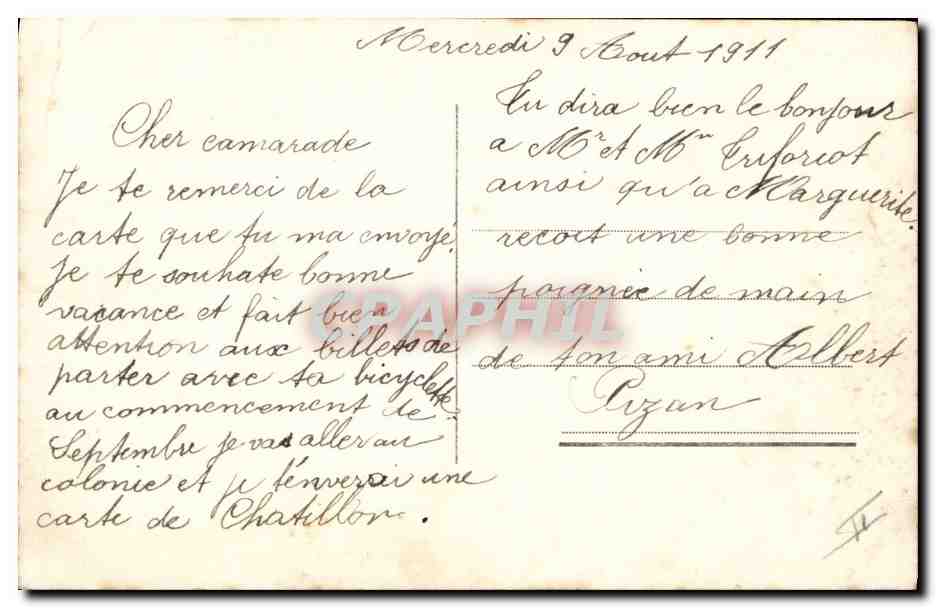 Mercredi 9 Aout 1911
Cher camarade
Je te remerci de la
carte que tu ma envoyé.
Je te souhate bonne
vacance et fait bien
attention aux billets de
parter avec ta bicyclette
au commencement de
Septembre je vas aller au
colonie et je t'enverai une
carte de Chatillon.
Tu dira bien le bonjour
a Mr et Mm Triforiot
ainsi qu'a Marguerite.
recoit une bonne
poignée de main
de ton ami Albert
Pizan
CPAPHIL